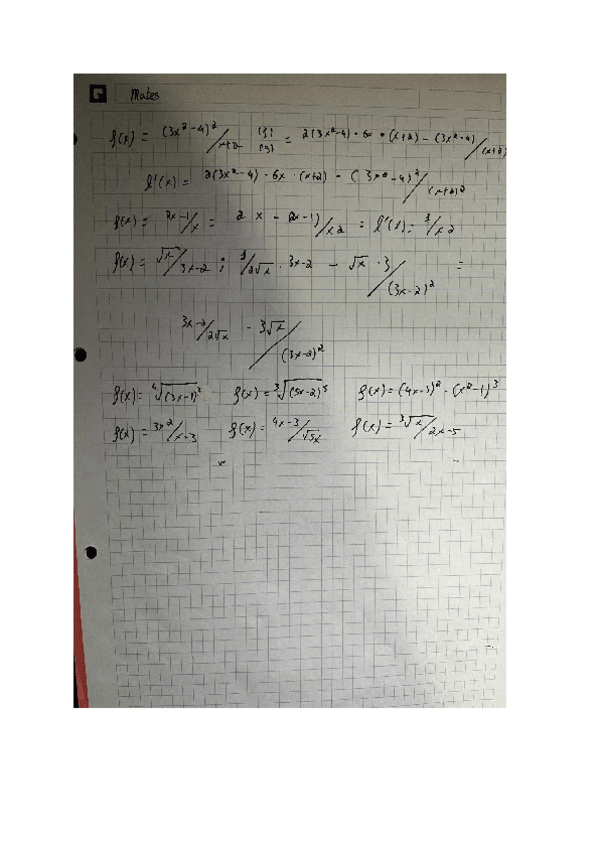 Mates
f(x) = (3x² - 4)² / x+2 = 2(3x² - 4) · 6x · (x+2) - (3x² - 4) / (x+2)
f'(x) = 2(3x² - 4) · 6x · (x+2) - (3x² - 4)² / (x+2)²
f(x) = 2x - 1 / x = 2 x - (2x - 1) / x2 = f'(x) = 1 / x2
f(x) = √x / 3x - 2 ; 1 / 2√x · 3x - 2 - √x · 3 / (3x - 2)² =
3x - 2 / 2√x - 3√x / (3x - 2)²
f(x) = ⁴√(3x - 1)² f(x) = ³√(5x - 2)⁵ f(x) = (4x - 3)² · (x² - 1)³
f(x) = 3x2 / x - 3 f(x) = 4x - 3 / √5x f(x) = ³√x / 2x - 5